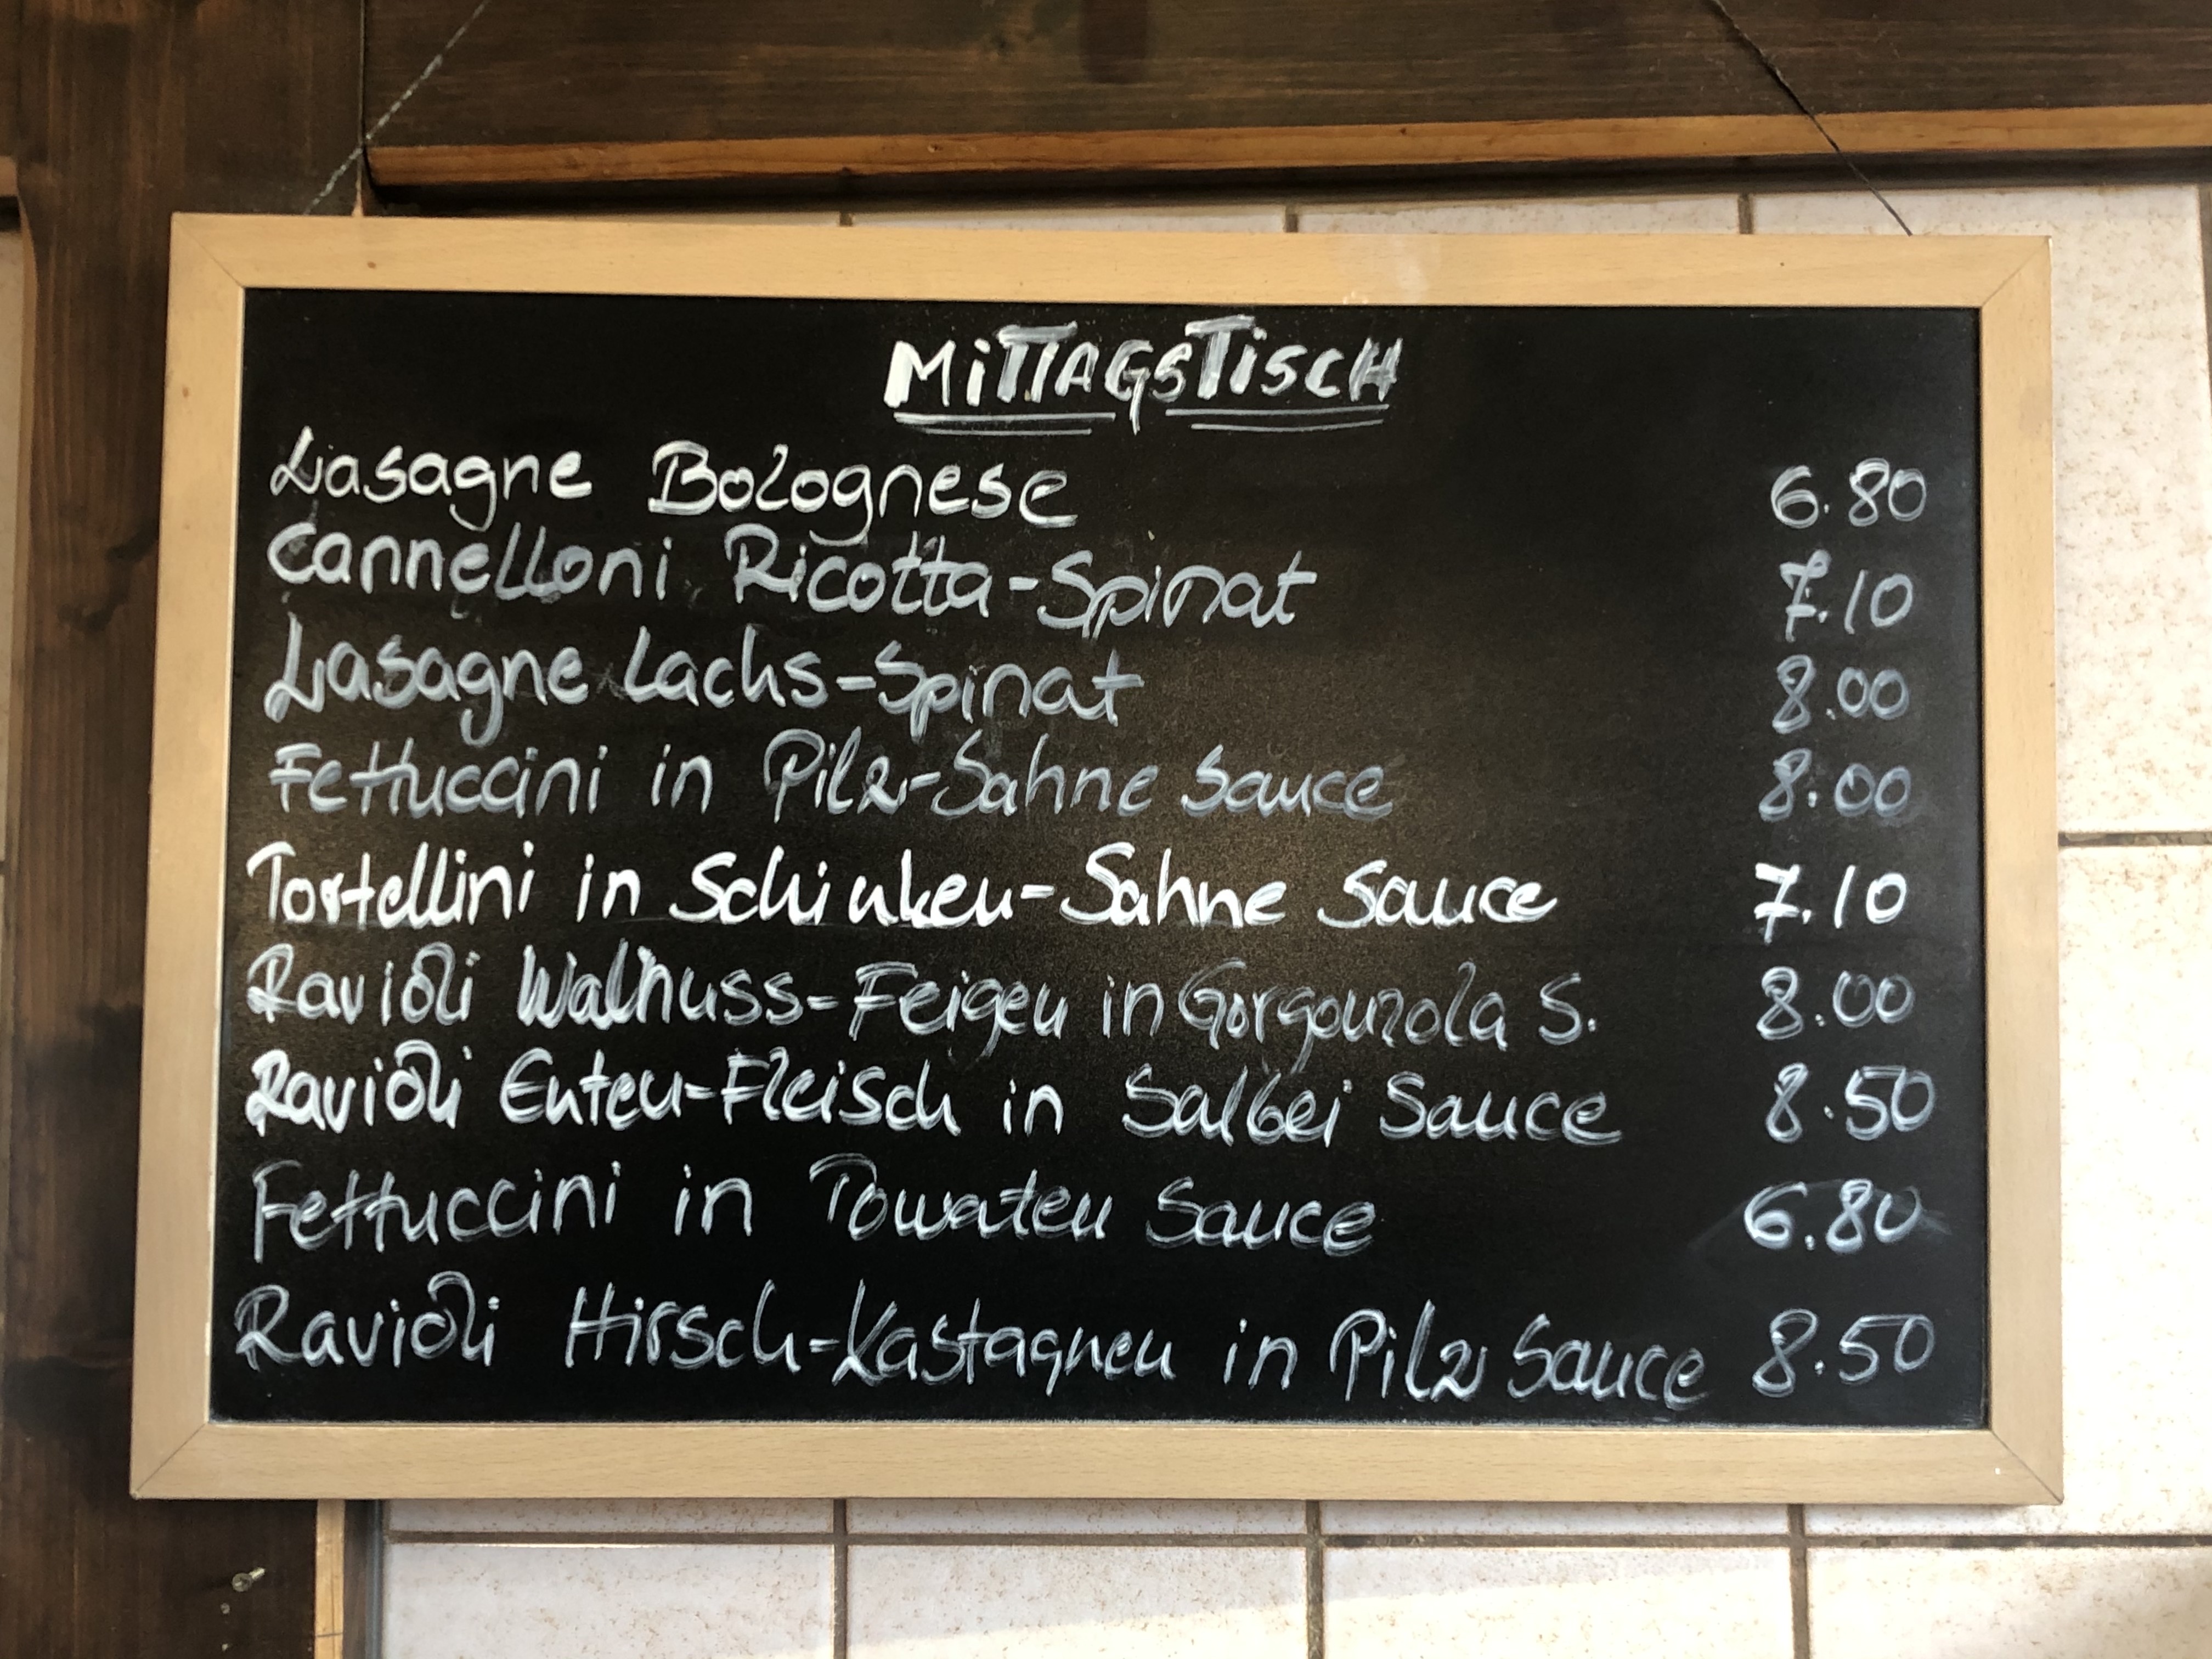 MiTTAGSTiSCH
Lasagne Bolognese 6.80
Cannelloni Ricotta-Spinat 7.10
Lasagne Lachs-Spinat 8.00
Fettuccini in Pilz-Sahne Sauce 8.00
Tortellini in Schinken-Sahne Sauce 7.10
Ravioli Walnuss-Feigen in Gorgonzola S. 8.00
Ravioli Enten-Fleisch in Salbei Sauce 8.50
Fettuccini in Tomaten Sauce 6.80
Ravioli Hirsch-Kastagnen in Pilz Sauce 8.50